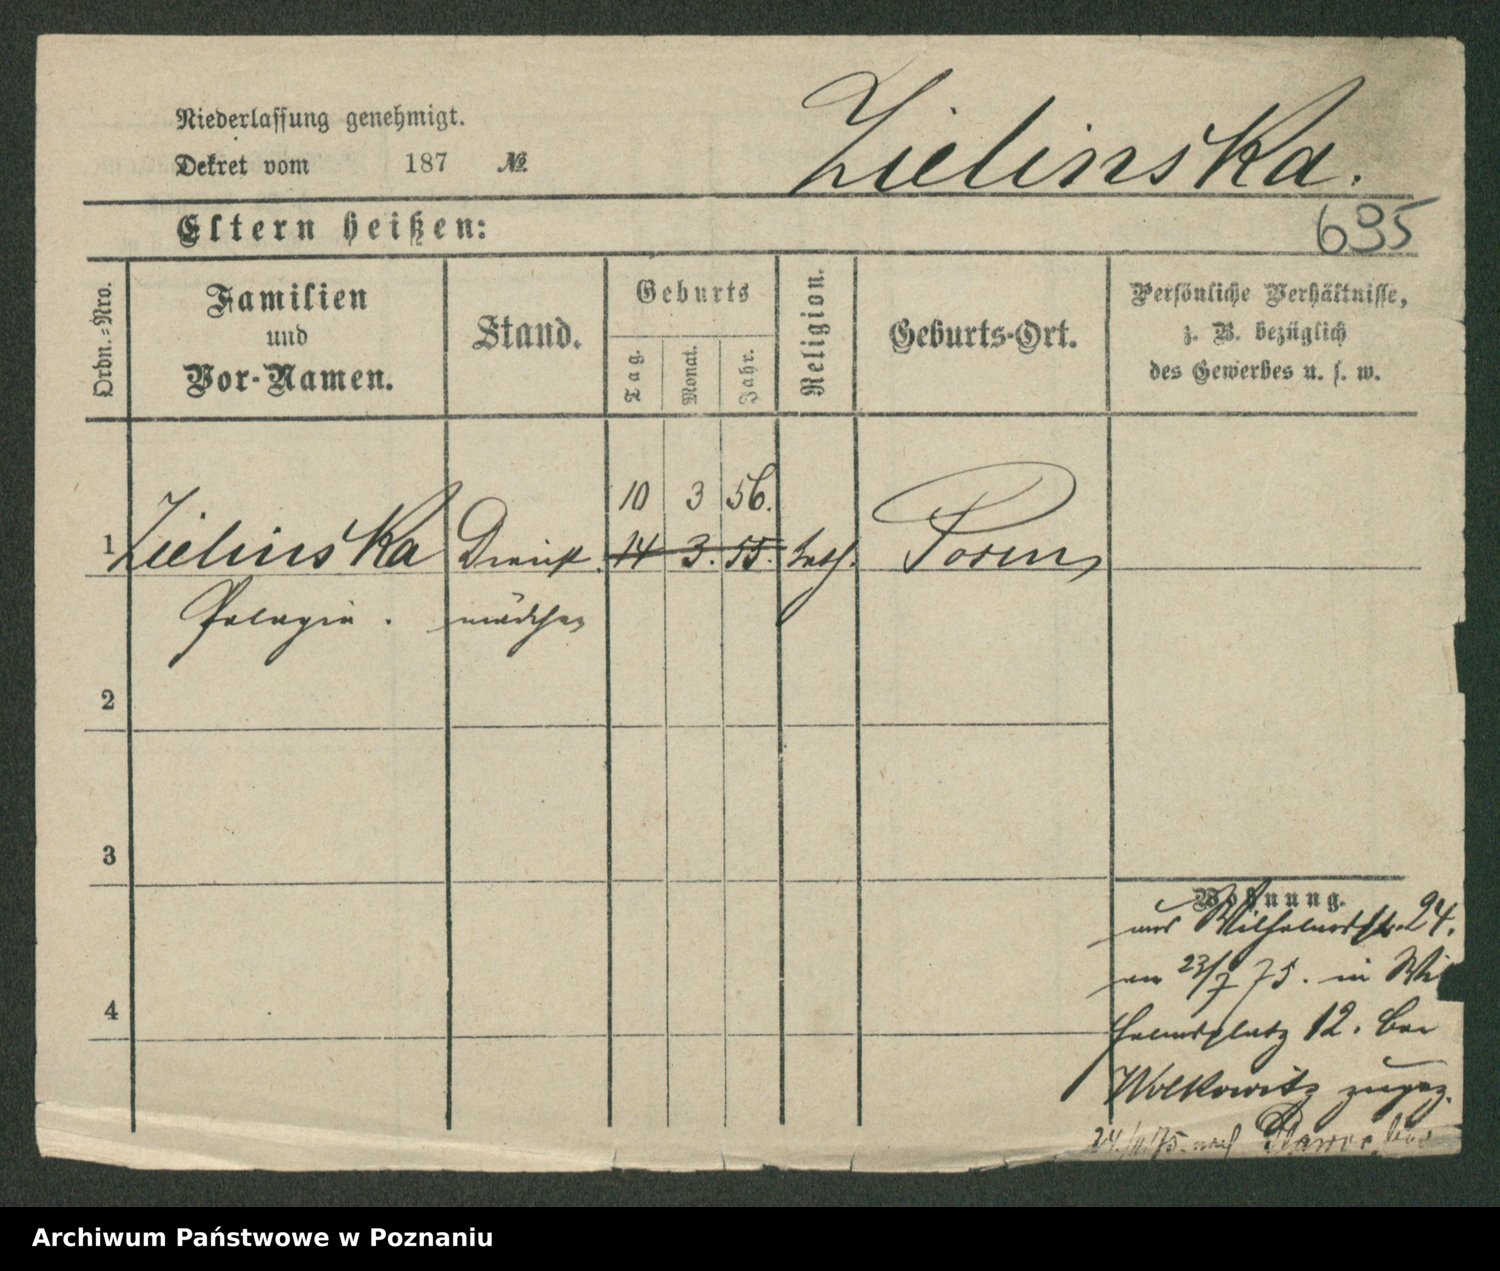 Niederlassung genehmigt.
Dekret vom 187 №
Zielinska.
Eltern heißen:
695
Ordn.-Nro.
Familien
und
Vor-Namen.
Stand.
Geburts
Tag.
Monat.
Jahr.
Religion.
Geburts-Ort.
Persönliche Verhältnisse,
z. B. bezüglich
des Gewerbes u. s. w.
10 3 56.
1 Zielinska Dienst 14 3. 55. kath. Posen
Pelagia. mädchen
2
3
Wohnung.
aus Wilhelmsstr. 24.
am 23/7 75. in Wil
helmsplatz 12. bei
4
Wolkowitz zugez.
24./11.75. nach
Archiwum Państwowe w Poznaniu